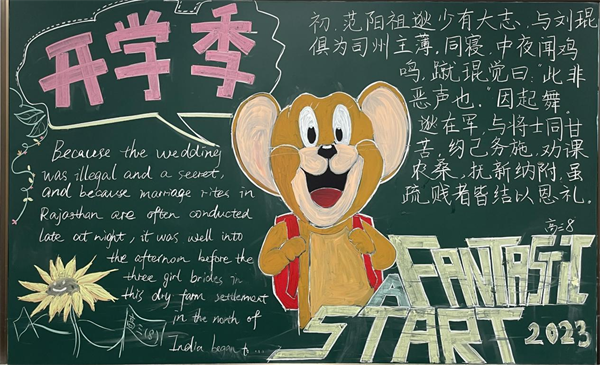 开学季
初,范阳祖逖少有大志,与刘琨
俱为司州主薄,同寝,中夜闻鸡
鸣,蹴琨觉曰:"此非
恶声也."因起舞.
逖在军,与将士同甘
苦,约己务施,劝课
农桑,抚新纳附,虽
疏贱者皆结以恩礼.
高三8
Because the wedding
was illegal and a secret,
and because marriage rites in
Rajasthan are often conducted
late at night, it was well into
the afternoon before the
three girl brides in
this dry farm settlement
in the north of
India began t...
高三(8)
A FANTASTIC
START 2023